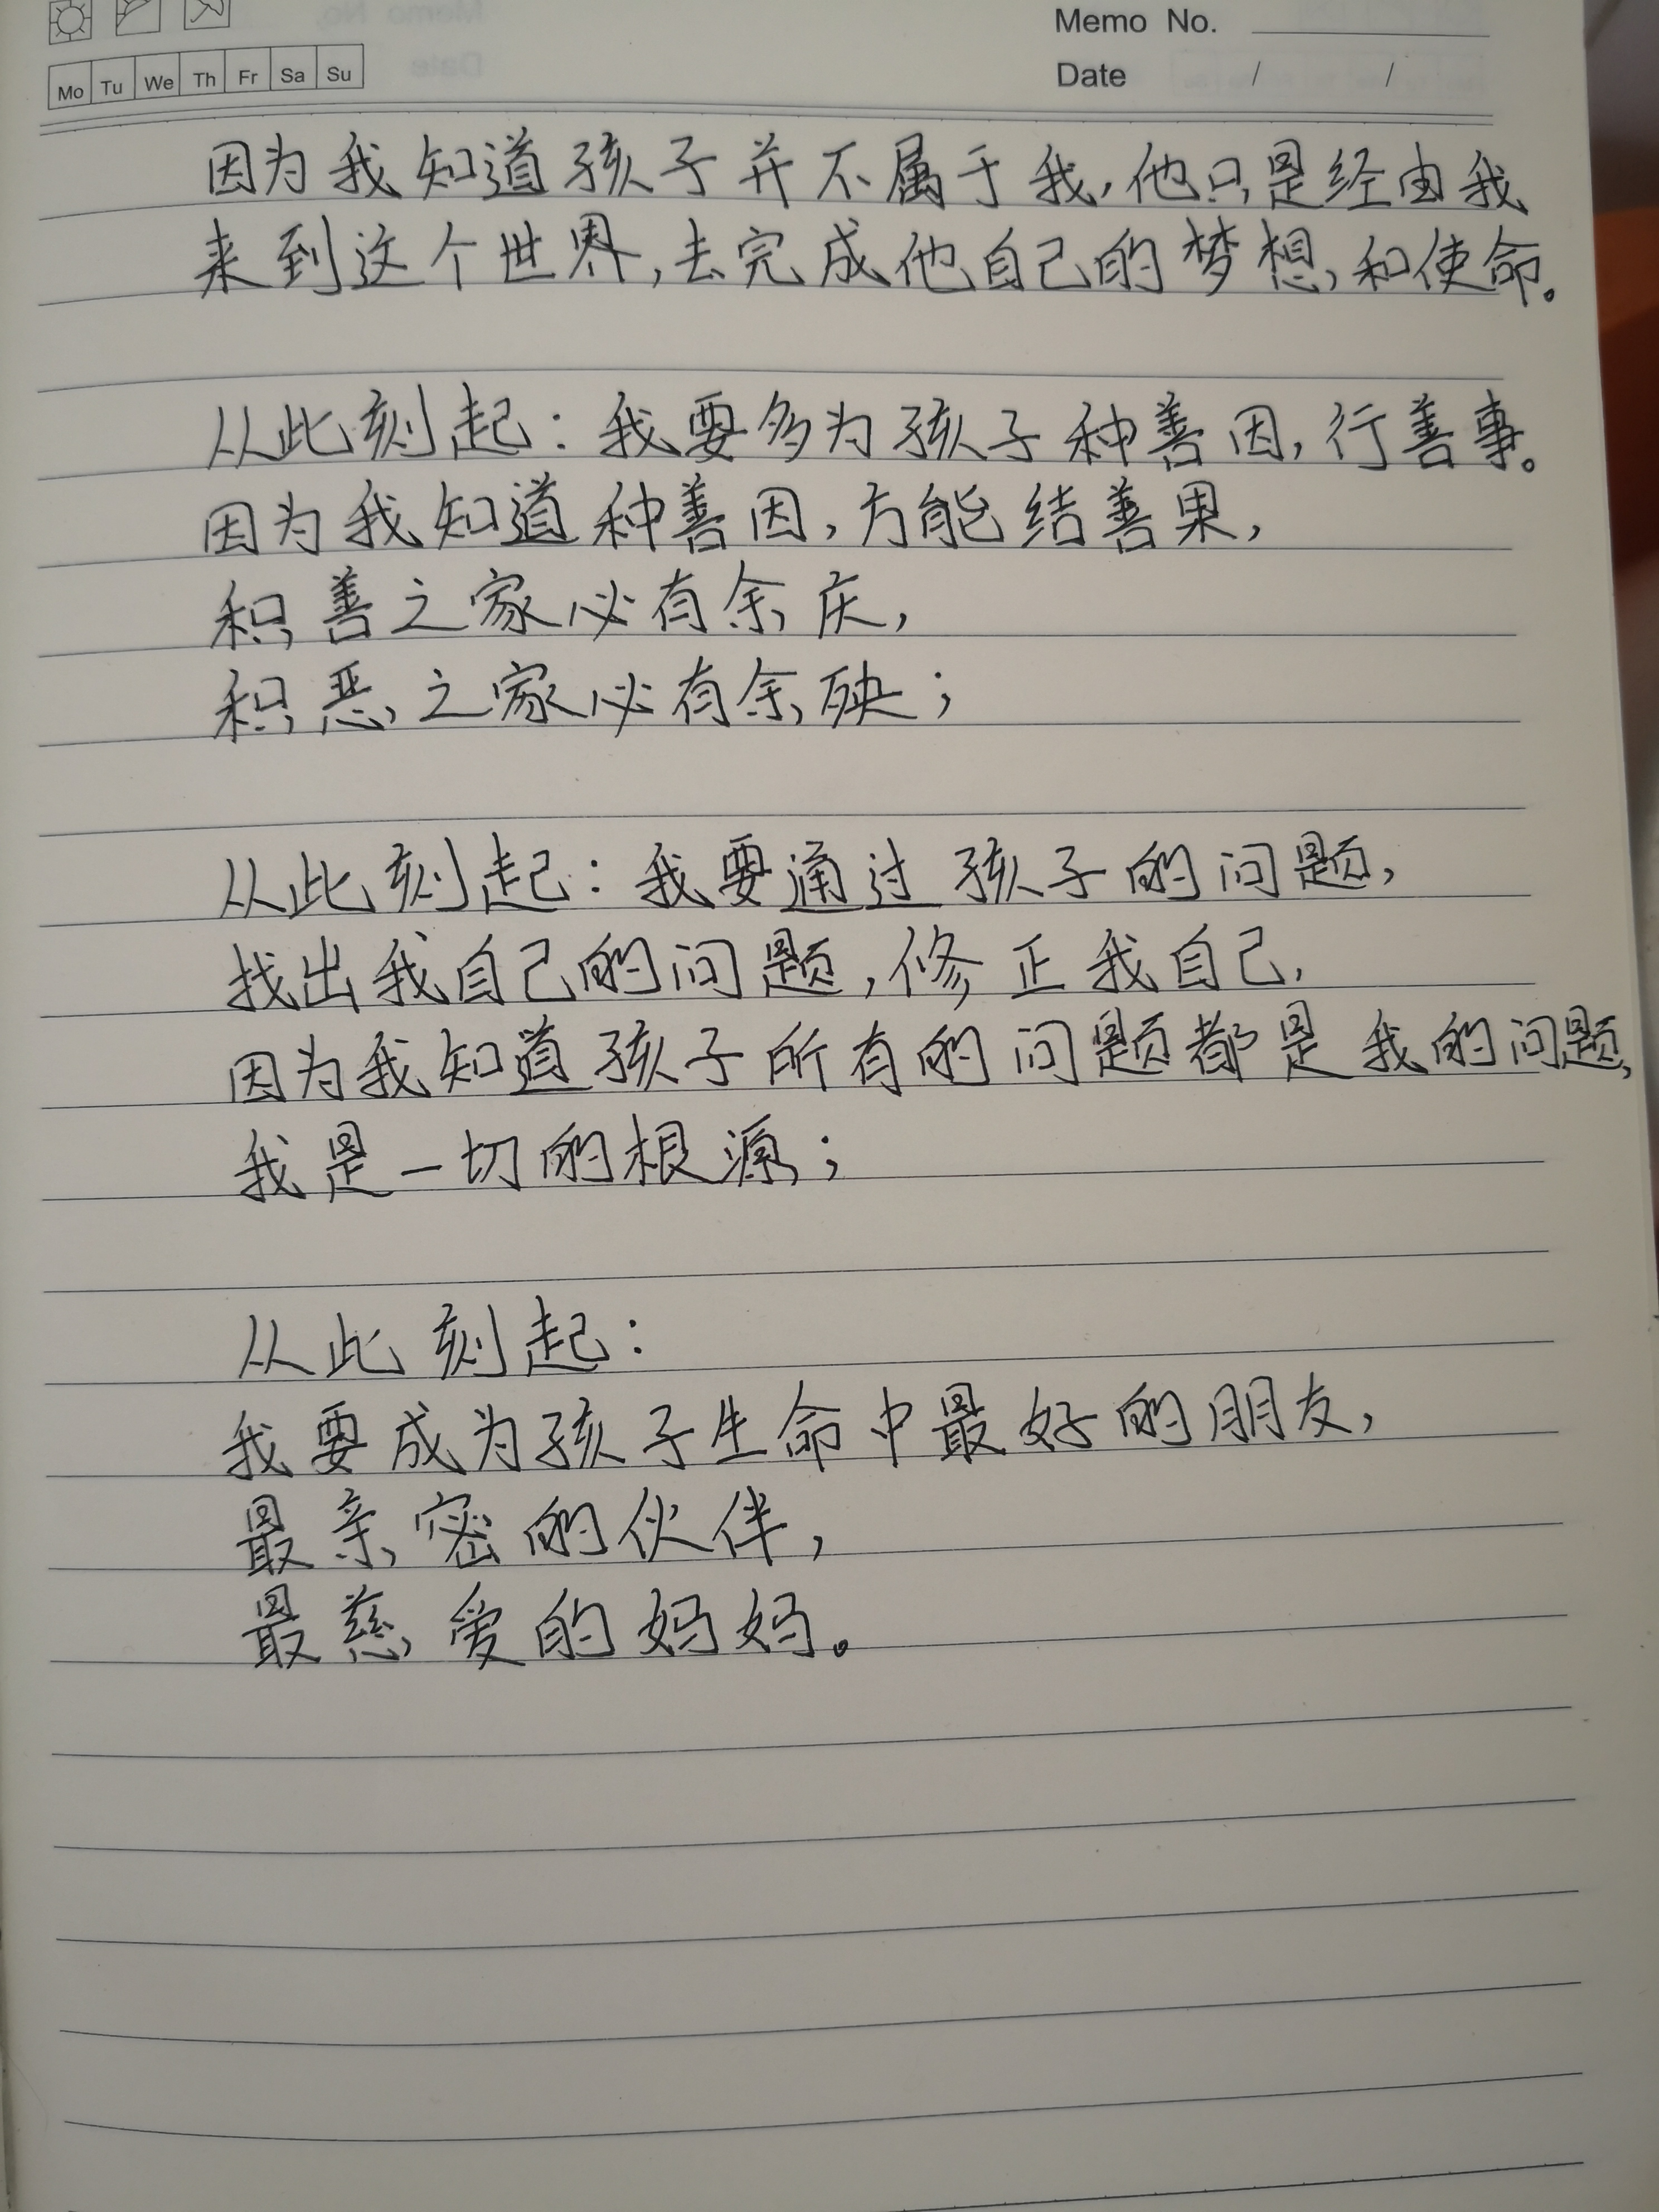 Memo No.
Mo Tu We Th Fr Sa Su
Date / /
因为我知道孩子并不属于我,他只是经由我
来到这个世界,去完成他自己的梦想,和使命。
从此刻起:我要多为孩子种善因,行善事。
因为我知道种善因,方能结善果,
积善之家必有余庆,
积恶之家必有余殃;
从此刻起:我要通过孩子的问题,
找出我自己的问题,修正我自己,
因为我知道孩子所有的问题都是我的问题,
我是一切的根源;
从此刻起:
我要成为孩子生命中最好的朋友,
最亲密的伙伴,
最慈爱的妈妈。